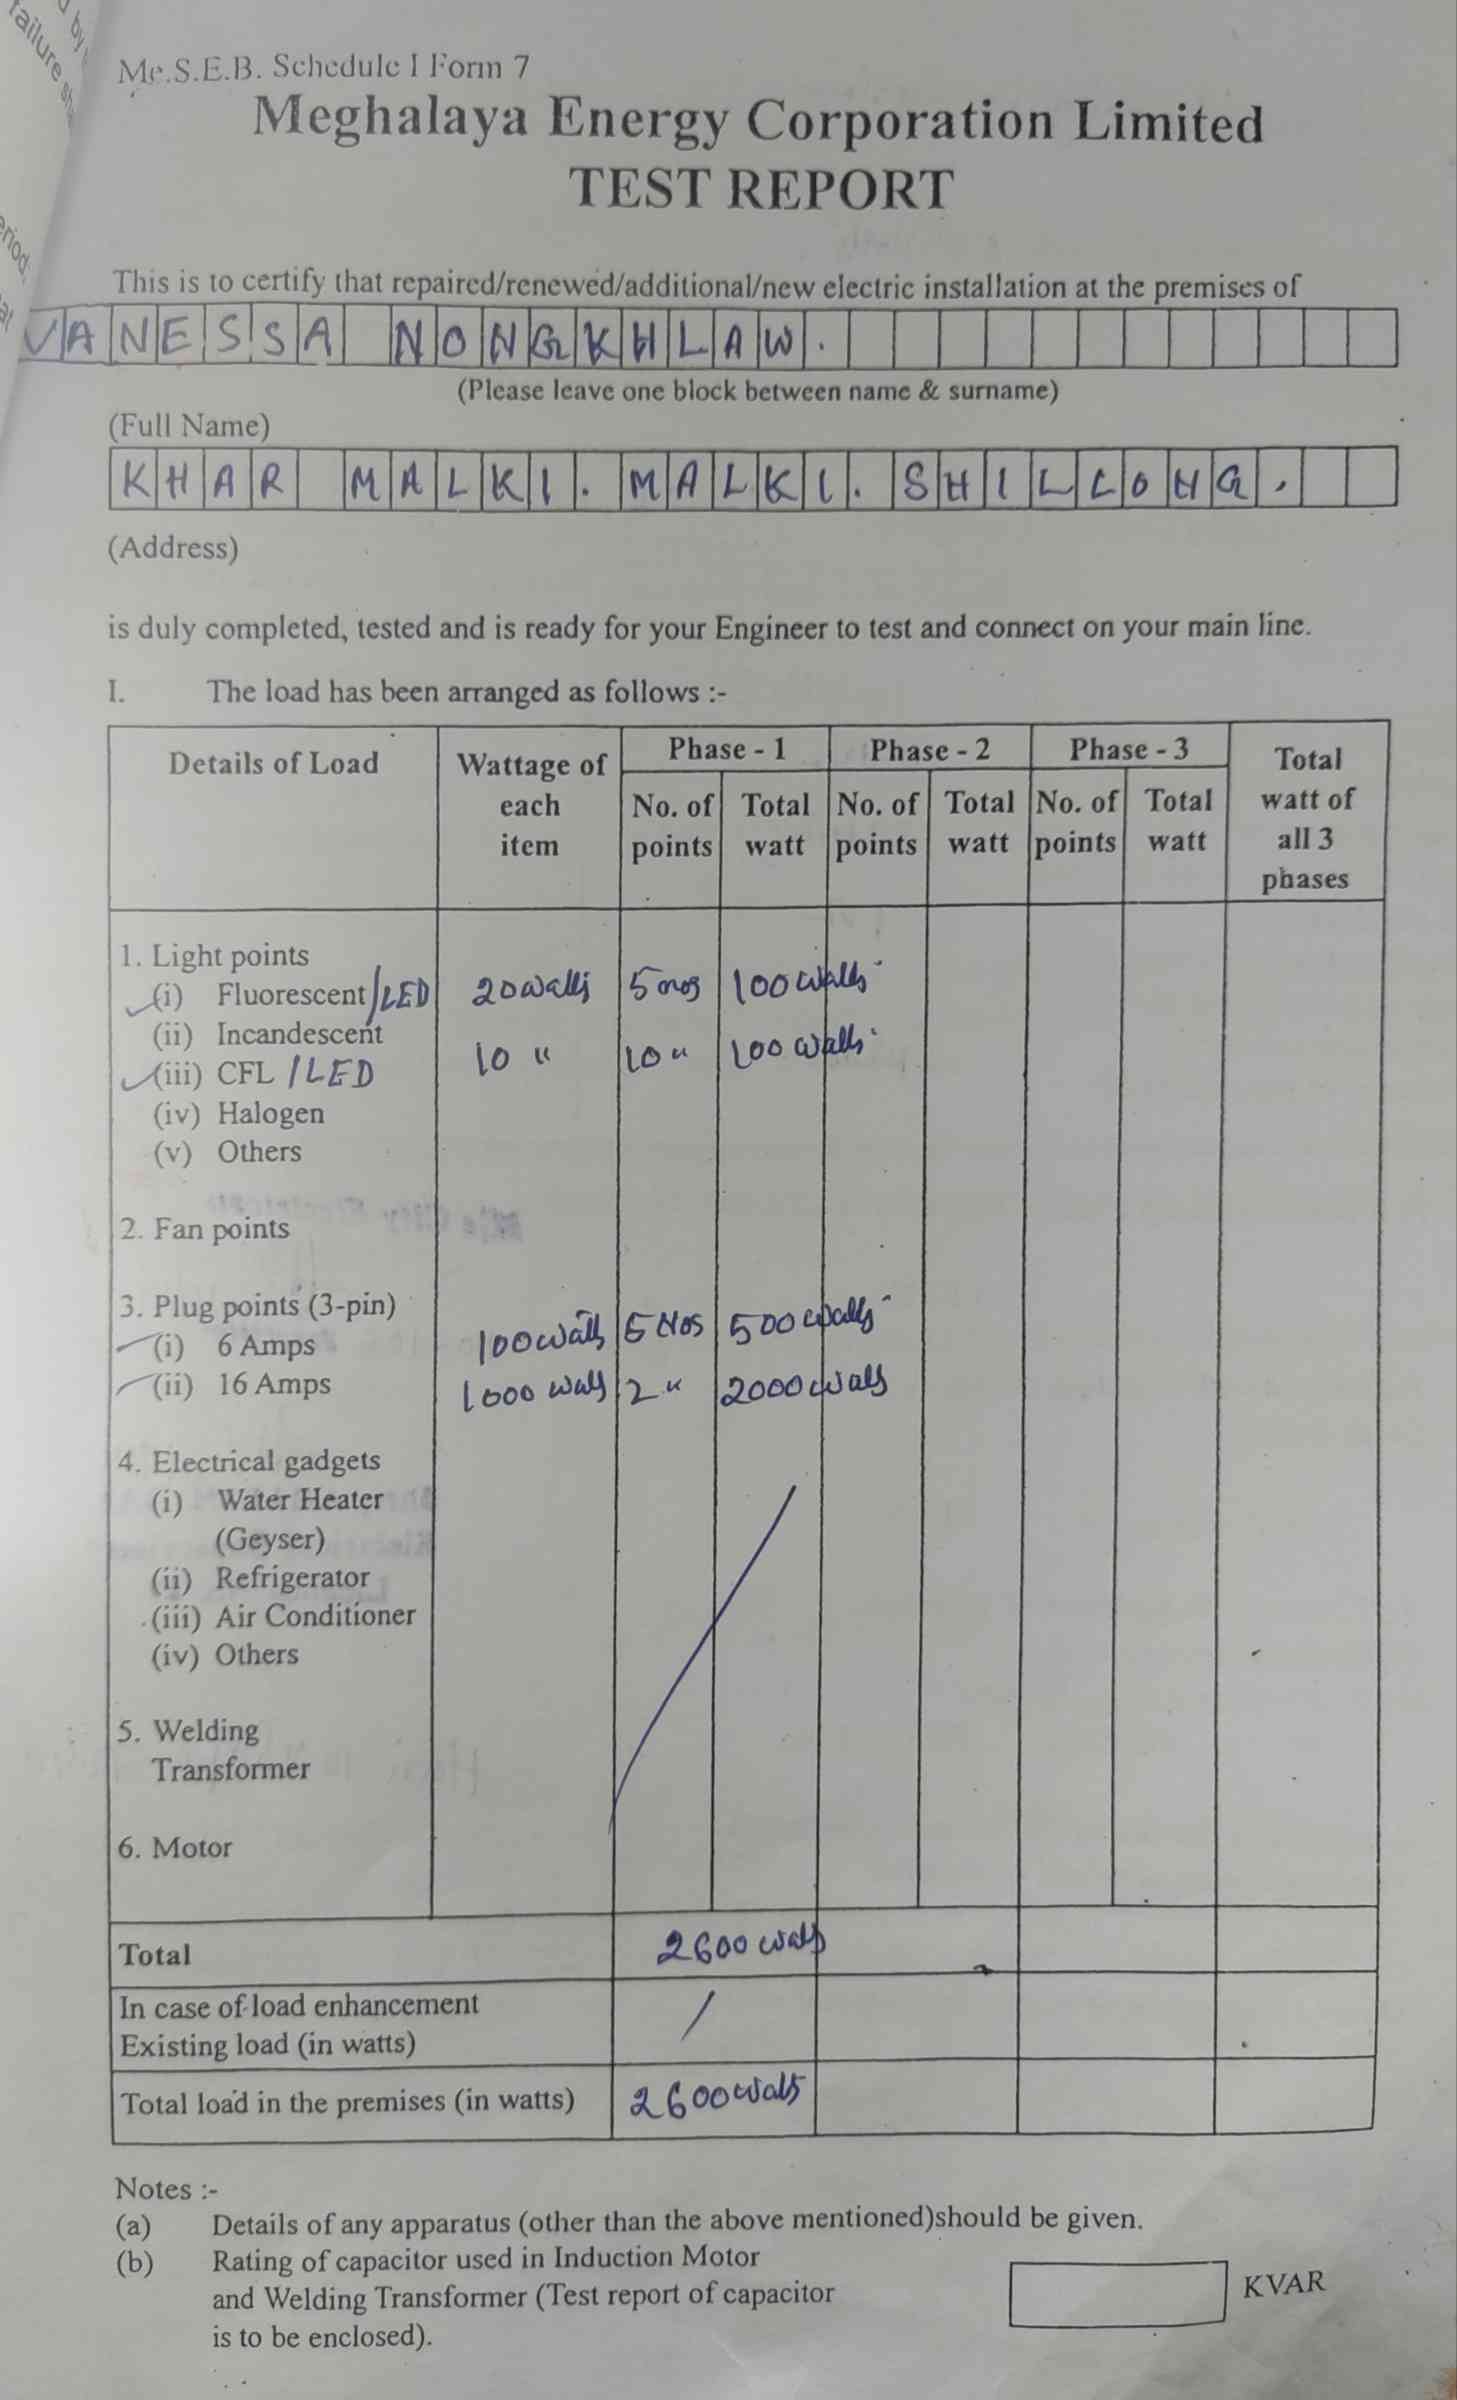 ailure sh
d by
eriod;
Me.S.E.B. Schedule I Form 7
Meghalaya Energy Corporation Limited
TEST REPORT
This is to certify that repaired/renewed/additional/new electric installation at the premises of
VANESSA NONGKHLAW.
(Please leave one block between name & surname)
(Full Name)
KHAR MALKI. MALKI. SHILLONG.
(Address)
is duly completed, tested and is ready for your Engineer to test and connect on your main line.
I. The load has been arranged as follows :-
Details of Load Wattage of each item Phase - 1 Phase - 2 Phase - 3 Total watt of all 3 phases
No. of points Total watt No. of points Total watt No. of points Total watt
1. Light points
(i) Fluorescent/LED 20 watts 5 nos 100 watts
(ii) Incandescent
(iii) CFL /LED 10 " 10 " 100 watts
(iv) Halogen
(v) Others
2. Fan points
3. Plug points (3-pin)
(i) 6 Amps 100 watts 5 Nos 500 watts
(ii) 16 Amps 1000 watts 2 " 2000 watts
4. Electrical gadgets
(i) Water Heater
(Geyser)
(ii) Refrigerator
(iii) Air Conditioner
(iv) Others
5. Welding
Transformer
6. Motor
Total 2600 watts
In case of load enhancement
Existing load (in watts) /
Total load in the premises (in watts) 2600 watts
Notes :-
(a) Details of any apparatus (other than the above mentioned)should be given.
(b) Rating of capacitor used in Induction Motor
and Welding Transformer (Test report of capacitor KVAR
is to be enclosed).